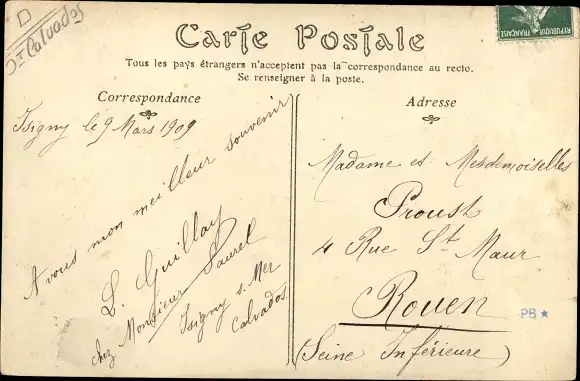 Dt Calvados
Carte Postale
Tous les pays étrangers n'acceptent pas la correspondance au recto.
Se renseigner à la poste.
Correspondance
Isigny le 9 Mars 1909
A vous mon meilleur souvenir
L. Guillay
chez Monsieur Saurel
Isigny s. Mer
Calvados.
Adresse
Madame et Mesdemoiselles
Proust
4 Rue St Maur
Rouen
(Seine Inférieure)
REPUBLIQUE FRANÇAISE
PB